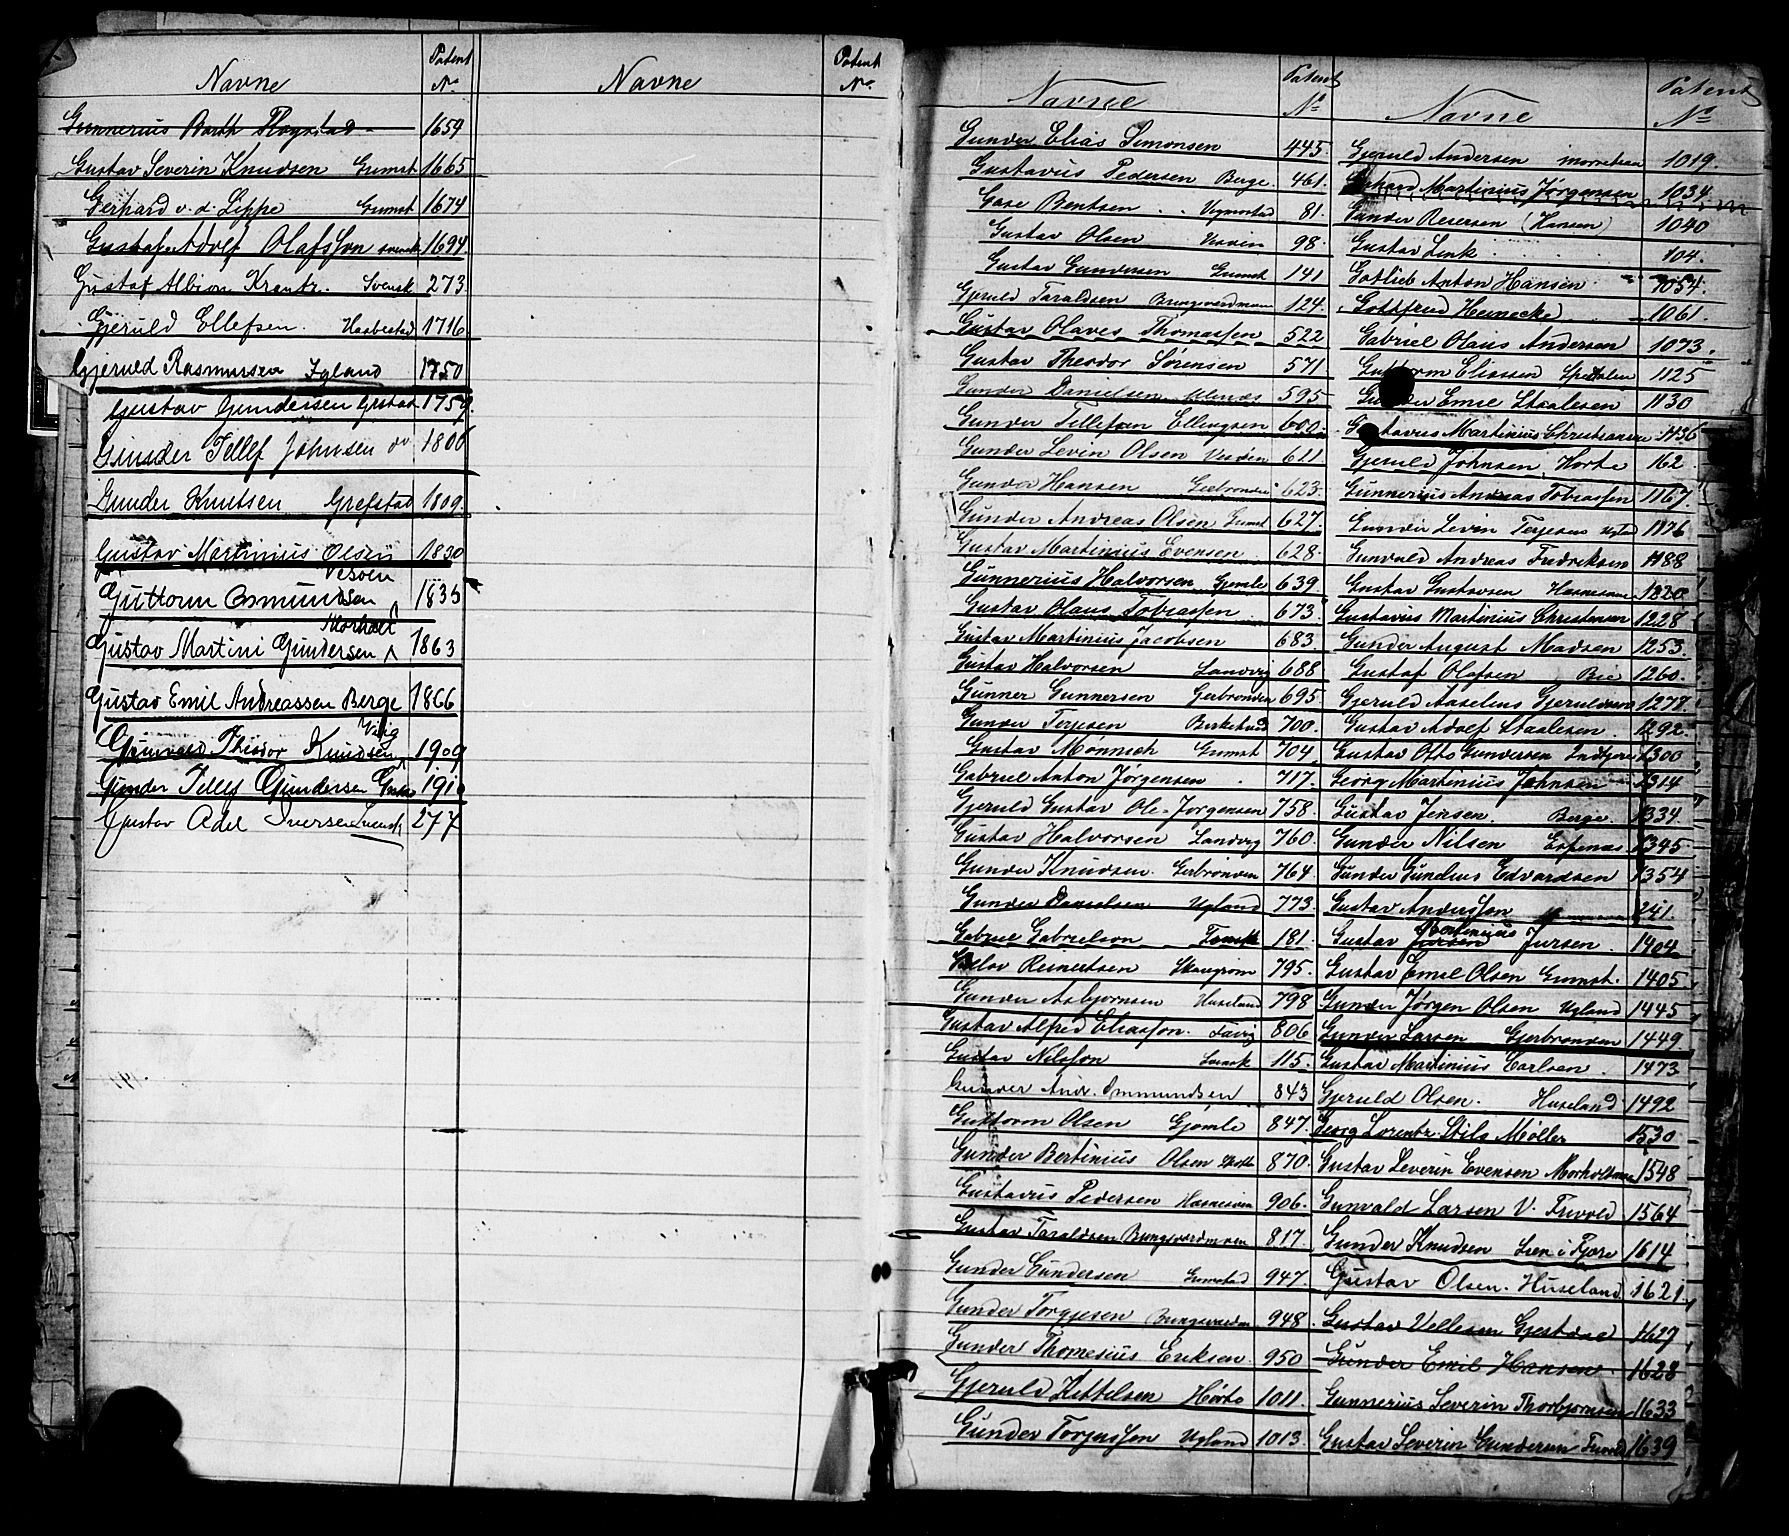 Navne Patent No
Gunnerius Barth
1659
Gustav Severin Knudsen Grimst 1665
Gerhard v. d. Lippe Grimst 1674
Gustaf Adolf Olafsson svensk 1694
Gustaf Albion Krantz. Svensk 273
Gjeruld Ellefsen. Hasbestad 1716
Gjeruld Rasmussen Igland 1750
Gustav Gundersen 1759
Gunder Tellef Johnsen 1806
Gunder Knutsen Grefstad 1809
Gustav Martinius Olsen 1830
Vesøen
Guttorm Osmundsen 1835
Morholt
Gustav Martini Gundersen 1863
Gustav Emil Andreassen Berge 1866
Viig
Gunvald Theodor Knudsen 1909
Gunder Tellef Gundersen 1910
Gustav Adel Iversen Svensk 277
Navne Patent No
Navne Patent No
Gunder Elias Simonsen 445
Gustavus Pedersen Berge 461
Gase Bentsen Vigmostad 81
Gustav Olsen 98
Gustav Gundersen Grimst 141
Gjeruld Taraldsen Bringsværdmoen 124
Gustav Olaves Thomassen 522
Gustav Theodor Sørensen 571
Gunder Danielsen 595
Gunder Tellefsen Ellingsen 600
Gunder Levin Olsen Vesøen 611
Gunder Hansen Gjerbrønden 623
Gunder Andreas Olsen Grimst 627
Gustav Martinius Evensen 628
Gunnerius Halvorsen Gjømle 639
Gustav Olaus Tobiassen 673
Gustav Martinius Jacobsen 683
Gustav Halvorsen Landvig 688
Gunner Gunnersen Gerbrønden 695
Gunder Terjesen Birketved 700
Gustav Mønnich Grimst 704
Gabriel Anton Jørgensen 717
Gjeruld Gustav Ole-Jørgensen 758
Gustav Halvorsen Landvig 760
Gunder Knudsen Gerbrønden 764
Gunder Danielsen Ugland 773
Gabriel Gabrielson 181
Reinertsen 795
Gunder Asbjørnsen Huseland 798
Gustav Alfred Eliasson. 806
Gustav Nilsson Svensk 115
Gunder Andr. Ommundsen 843
Guttorm Olsen Gjømle 847
Gunder Bertinius Olsen 870
Gustavus Pedersen Hasnesøen 906
Gustav Taraldsen Bringsværdmoen 817
Gunder Gundersen Grimstad 947
Gunder Torgjesen 948
Gunder Thomesius Eriksen 950
Gjeruld Kittelsen Hørte 1011
Gunder Torjussen Ugland 1013
Navne Patent No
Gjeruld Andersen 1019
Martinius Jørgensen 1034
Gunder Reiersen (Hansen) 1040
Gustav Link 104
Gotlieb Anton Hansen 1054
Gottfred Heinecke 1061
Gabriel Olaus Andersen 1073
Guttorm Eliassen 1125
Gunder Emil Staalesen 1130
Gustavus Martinius Christiansen 1136
Gjeruld Johnsen, Hørte 162
Gunnerius Andreas Tobiassen 1167
Gunder Levin Terjesen 1176
Gunvald Andreas Fredriksen 1188
Gustav Gustavsen 1220
Gustavus Martinius Christensen 1228
Gunder August Madsen 1253
Gustaf Olafsen Bie 1260
Gjeruld Aaselius Gjeruldsen 1278
Gustav Adolf Staalesen 1292
Gustav Otto Gundersen 1300
Georg Martinius Johnsen 1314
Gustav Jensen. Berge 1334
Gunder Nilsen 1345
Gunder Gundius Edvardsen 1354
Gustav Andersson 241
Bertinius
Gustav Jursen 1404
Gustav Emil Olsen Grimst. 1405
Gunder Jørgen Olsen Ugland 1445
Gunder Larsen Gjerbrønden 1449
Gustav Martinius Carlsen 1473
Gjeruld Olsen. Huseland 1492
Georg Lorentz Stils Møller 1530
Gustav Severin Evensen Morholtmoen 1548
Gunvald Larsen V. Frivold 1564
Gunder Knudsen Lien i Fjære 1614
Gustav Olsen. Huseland 1621
Gustav Vellesen Gjestdal 1627
Gunder Emil Hansen 1628
Gunnerius Severin Thorbjørnsen 1633
Gustav Severin Gundersen Frivold 1639